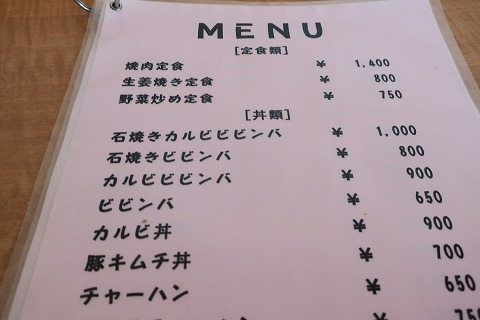 MENU
[定食類]
焼肉定食 ¥ 1,400
生姜焼き定食 ¥ 800
野菜炒め定食 ¥ 750
[丼類]
石焼きカルビビビンバ ¥ 1,000
石焼きビビンバ ¥ 800
カルビビビンバ ¥ 900
ビビンバ ¥ 650
カルビ丼 ¥ 900
豚キムチ丼 ¥ 700
チャーハン ¥ 650